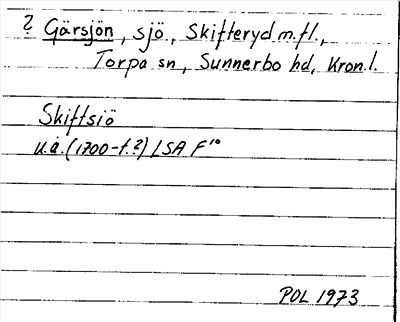 ? Gärsjön, sjö, Skifteryd m.fl.,
Torpa sn, Sunnerbo hd, Kron.l.
Skiftsiö
u.å. (1700-t.?) LSA F10
POL 1973